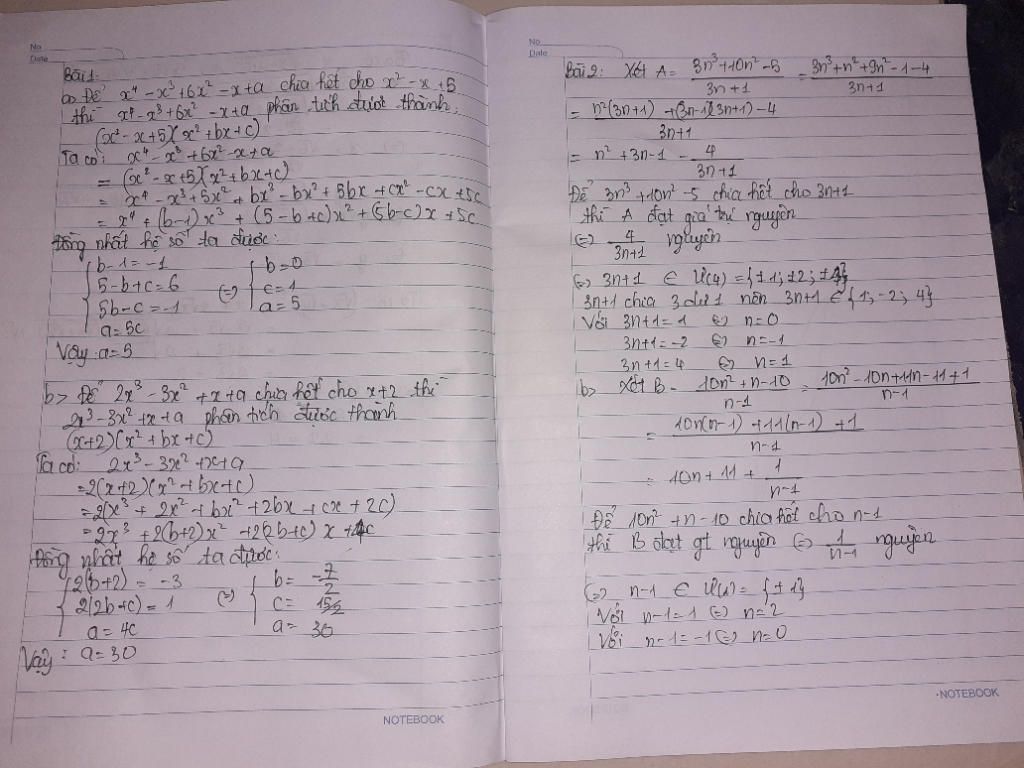 No
Date
Bài 1:
a> Để x⁴ - x³ + 6x² - x + a chia hết cho x² - x + 5
thì x⁴ - x³ + 6x² - x + a phân tích được thành:
(x² - x + 5)(x² + bx + c)
Ta có: x⁴ - x³ + 6x² - x + a
= (x² - x + 5)(x² + bx + c)
= x⁴ - x³ + 5x² + bx³ - bx² + 5bx + cx² - cx + 5c
= x⁴ + (b-1)x³ + (5-b+c)x² + (5b-c)x + 5c
Đồng nhất hệ số ta được:
{ b-1=-1 { b=0
5-b+c=6 (=) c=1
5b-c=-1 a=5
a=5c
Vậy a=5
b> Để 2x³ - 3x² + x + a chia hết cho x+2 thì
2x³ - 3x² + x + a phân tích được thành
(x+2)(x² + bx + c)
Ta có: 2x³ - 3x² + x + a
= 2(x+2)(x² + bx + c)
= 2(x³ + 2x² + bx² + 2bx + cx + 2c)
= 2x³ + 2(b+2)x² + 2(2b+c)x + 4c
Đồng nhất hệ số ta được:
{ 2(b+2) = -3 { b= -7/2
2(2b+c) = 1 (=) c= 15/2
a=4c a= 30
Vậy: a=30
NOTEBOOK
No
Date
Bài 2: Xét A = (3n³+10n²-5)/(3n+1) = (3n³+n²+9n²-1-4)/(3n+1)
= (n²(3n+1) + (3n-1)(3n+1) - 4)/(3n+1)
= n² + 3n - 1 - 4/(3n+1)
Để 3n³+10n²-5 chia hết cho 3n+1
thì A đạt giá trị nguyên
(=) 4/(3n+1) nguyên
(=) 3n+1 ∈ Ư(4) = {±1; ±2; ±4}
3n+1 chia 3 dư 1 nên 3n+1 ∈ {1; -2; 4}
Với 3n+1=1 (=) n=0
3n+1=-2 (=) n=-1
3n+1=4 (=) n=1
b> Xét B = (10n²+n-10)/(n-1) = (10n²-10n+11n-11+1)/(n-1)
= (10n(n-1) + 11(n-1) + 1)/(n-1)
= 10n + 11 + 1/(n-1)
Để 10n² + n - 10 chia hết cho n-1
thì B đạt gt nguyên (=) 1/(n-1) nguyên
(=) n-1 ∈ Ư(1) = {±1}
Với n-1=1 (=) n=2
Với n-1=-1 (=) n=0
NOTEBOOK